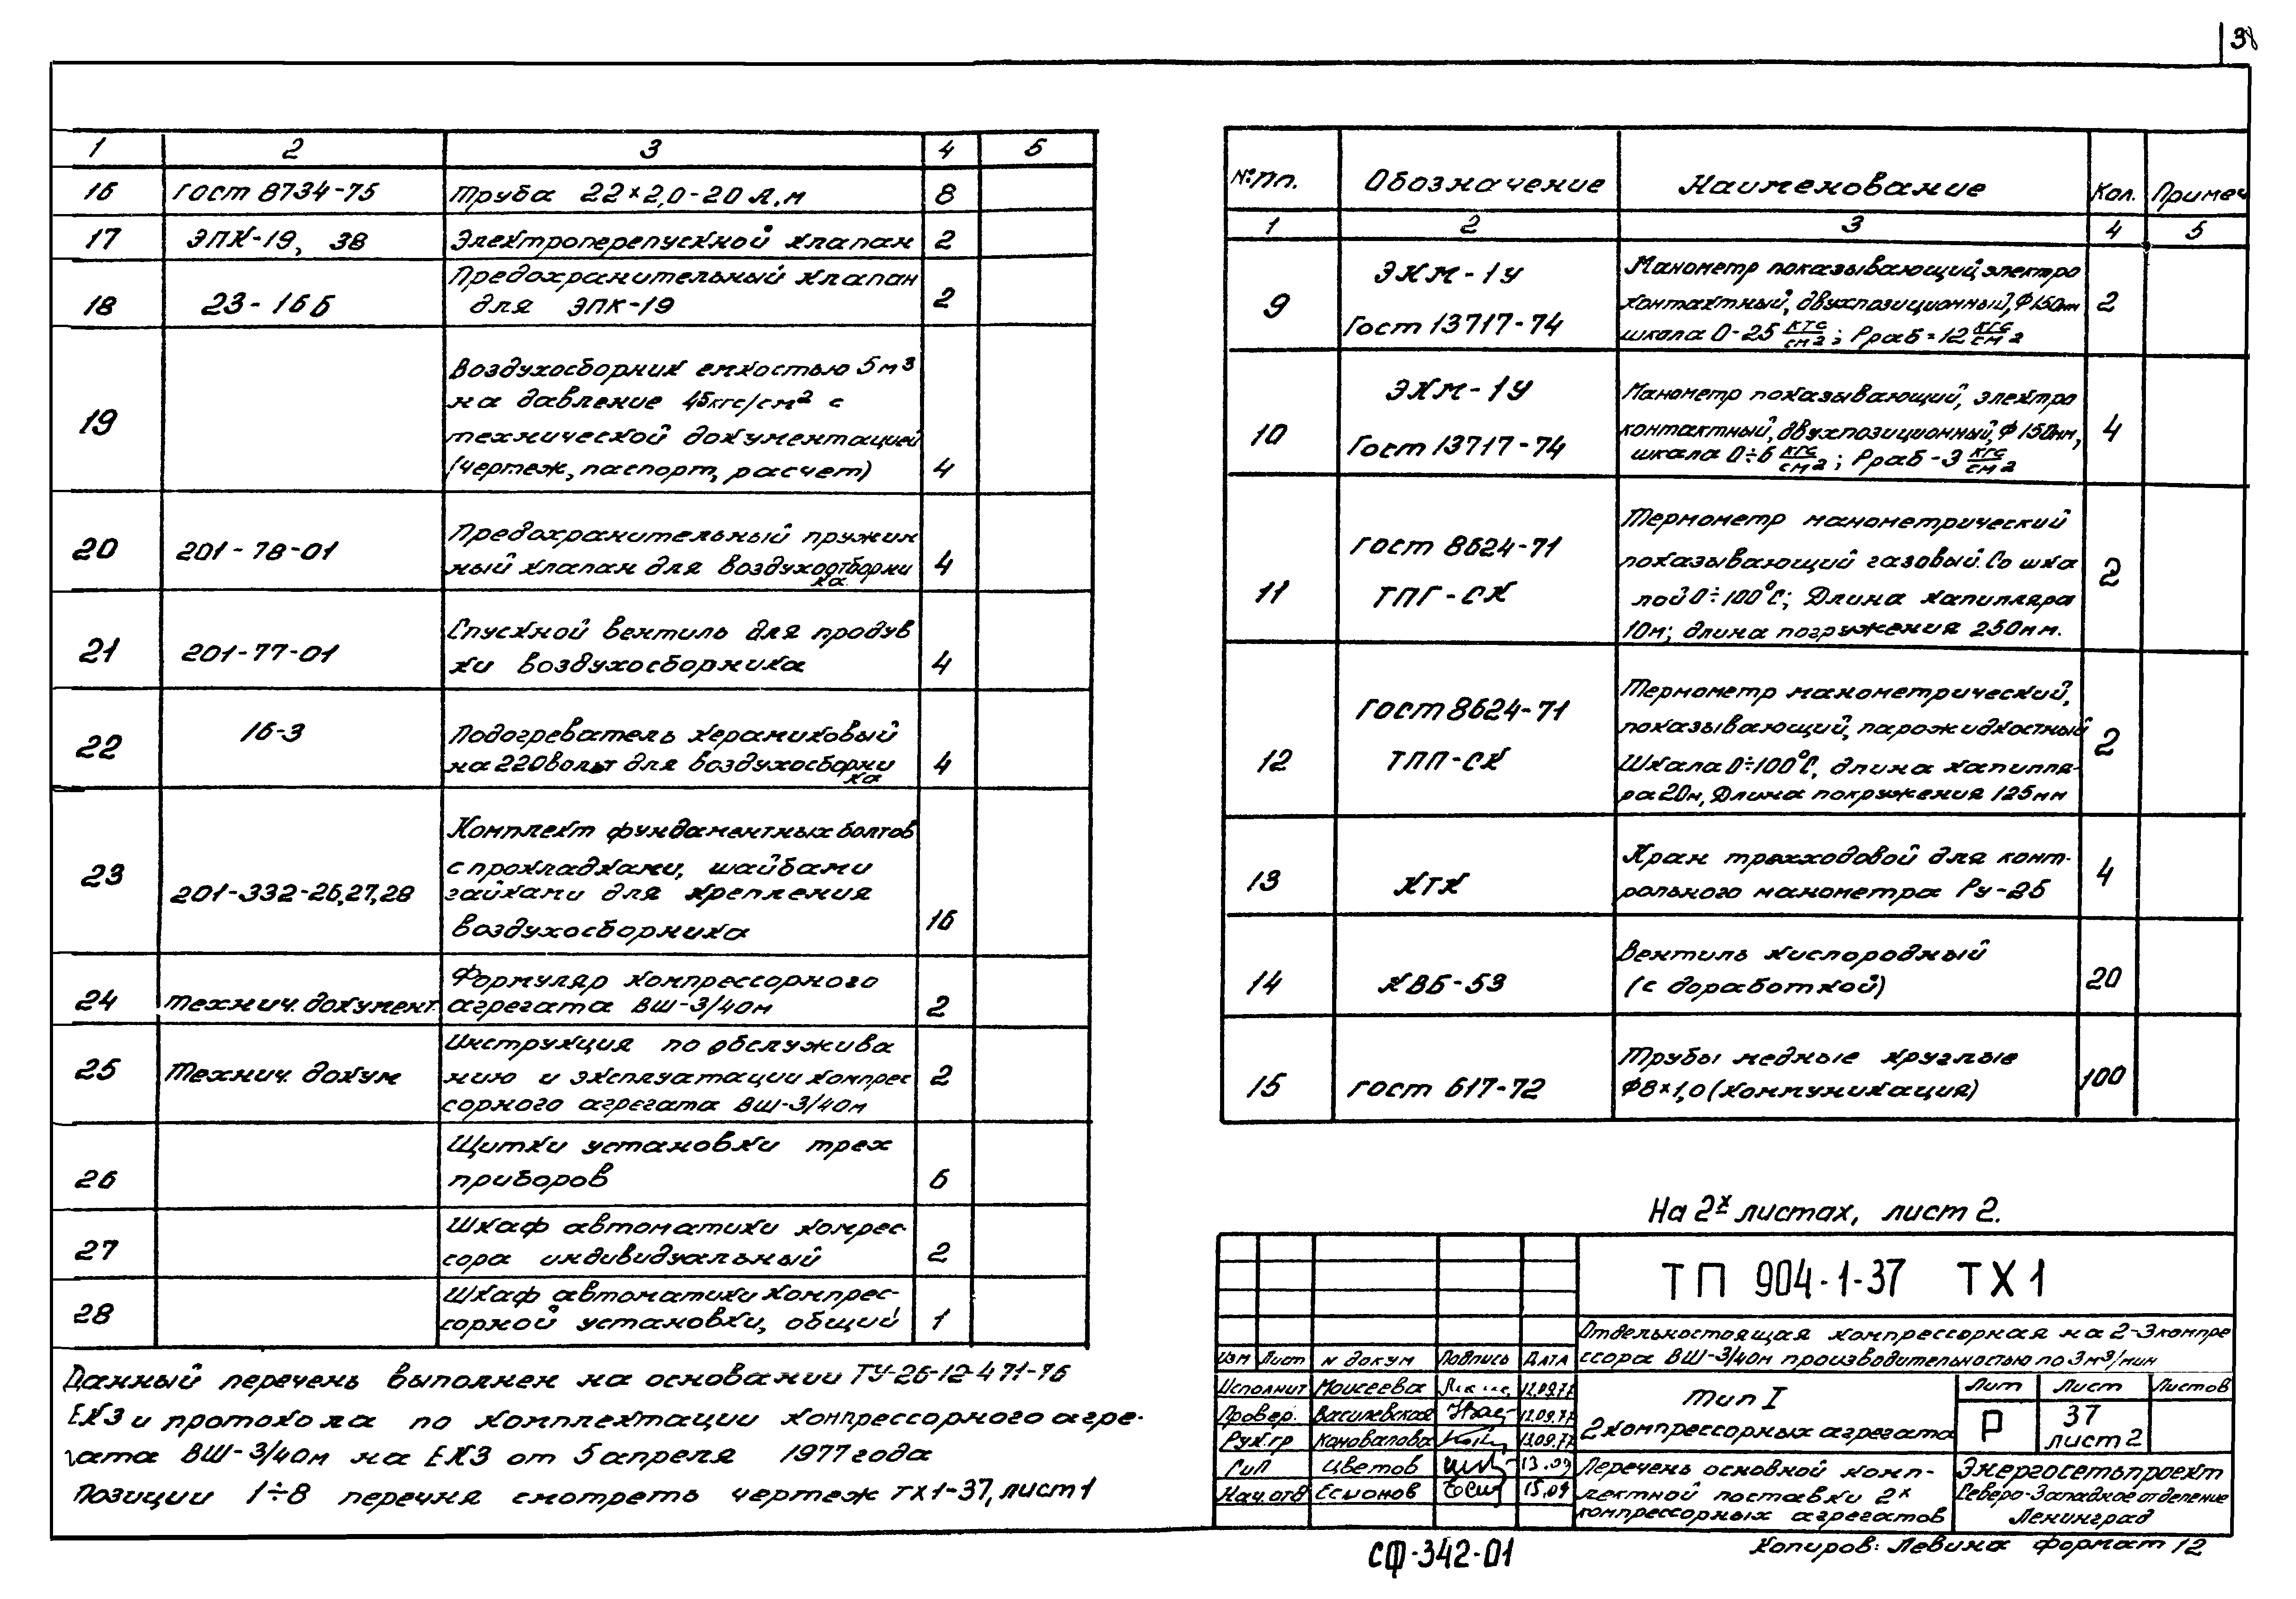 38
1 2 3 4 5
16 Гост 8734-75 Труба 22×2,0-20 Л.м 8
17 ЭПК-19, 3В Электроперепускной клапан 2
Предохранительный клапан
18 23-16б для ЭПК-19 2
Воздухосборник емкостью 5м³
на давление 45кгс/см² с
19 технической документацией
(чертеж, паспорт, расчет) 4
Предохранительный пружин
20 201-78-01 ный клапан для воздухоотборни 4
ка.
Спускной вентиль для продув
21 201-77-01 ки воздухосборника 4
22 16-3 Подогреватель керамиковый
на 220вольт для воздухосборни 4
ка
Комплект фундаментных болтов
23 с прокладками, шайбами
201-332-26,27,28 гайками для крепления
воздухосборника 16
Формуляр компрессорного
24 технич. документ. агрегата ВШ-3/40м 2
Инструкция по обслужива
25 Технич. докум нию и эксплуатации компрес 2
сорного агрегата ВШ-3/40м
Щитки установки трех
26 приборов 6
Шкаф автоматики компрес-
27 сора индивидуальный 2
Шкаф автоматики компрес-
28 сорной установки, общий 1
Данный перечень выполнен на основании ТУ-26-12-471-76
ЕКЗ и протокола по комплектации компрессорного агре-
гата ВШ-3/40м на ЕКЗ от 5 апреля 1977 года
Позиции 1÷8 перечня смотреть чертеж ТХ1-37, лист 1
№ пп. Обозначение Наименование Кол. Примеч
1 2 3 4 5
ЭКМ-1У Манометр показывающий, электро
9 контактный, двухпозиционный, ф150мм 2
Гост 13717-74 шкала 0-25 кгс/см²; Рраб=12 кгс/см²
ЭКМ-1У Манометр показывающий, электро
10 Гост 13717-74 контактный, двухпозиционный, ф150мм, 4
шкала 0÷6 кгс/см²; Рраб-3 кгс/см²
Термометр манометрический
Гост 8624-71 показывающий газовый. Со шка 2
11 ТПГ-СК лой 0÷100°С; Длина капилляра
10м; длина погружения 250мм.
Термометр манометрический,
Гост 8624-71 показывающий, парожидкостный 2
12 ТПП-СК Шкала 0÷100°С, длина капилля-
ра 20м, Длина погружения 125мм
Кран трехходовой для конт-
13 КТК рольного манометра Ру-25 4
Вентиль кислородный
14 КВБ-53 (с доработкой) 20
Трубы медные круглые
15 гост 617-72 Ф8×1,0 (коммуникация) 100
На 2х листах, лист 2.
ТП 904-1-37 ТХ1
Отдельностоящая компрессорная на 2-3 компре
Изм Лист N докум Подпись Дата
ссора ВШ-3/40м производительностью по 3м³/мин
Исполнит Моисеева 12.09.77
Провер. Василевская 12.09.77
Рук.гр Коновалова 13.09.77
ГиП Цветов 13.09
Нач.отд Есионов 15.09
Тип I
2 компрессорных агрегата
Лит Лист Листов
Р 37
лист 2
Перечень основной комп-
лектной поставки 2х
компрессорных агрегатов
Энергосетьпроект
Северо-Западное отделение
Ленинград
СФ-342-01
Копиров: Левина Формат 12